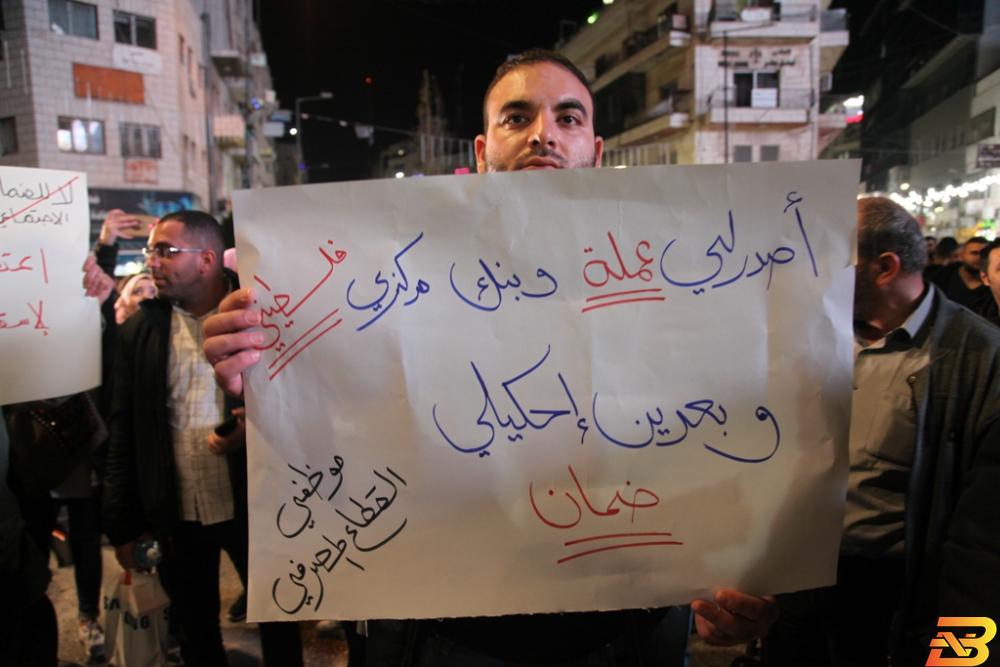 أصدرلي عملة وبنك مركزي فلسطيني
وبعدين إحكيلي
ضمان
موظفي
القطاع المصرفي
لا للضمان
الاجتماعي